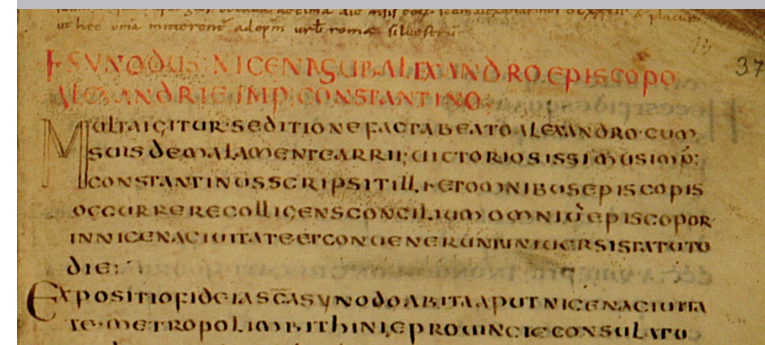 ut hec omia
37
SYNODUS NICENI SUB ALEXANDRO EPISCOPO
ALEXANDRIE IMP CONSTANTINO:
MULTA IGITUR SEDITIONE FACTA BEATO ALEXANDRO CUM
SUIS DE MALA MENTE ARRII; UICTORIOSISSIMUS IMP:
CONSTANTINUS SCRIPSIT ILLI ET OMNIBUS EPISCOPIS
OCCURRERE COLLIGENS CONCILIUM OMNIŨ EPISCOPOR
IN NICENA CIUITATE ET CONUENERUNT UNIUERSI STATUTO
DIE:
EXPOSITIO FIDEI A SCA SYNODO ABITA APUT NICENA CIUITA
TE METROPOLIM BITHINIE PROUINCIE CONSULATU